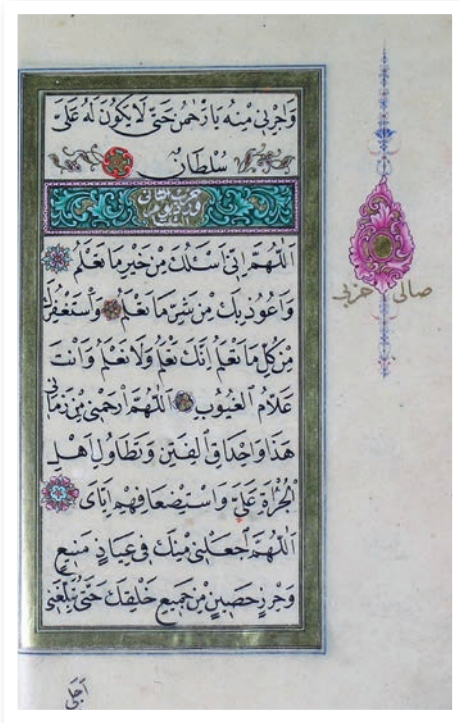 وَاَجِرْنِي مِنْهُ يَارَحْمٰنُ حَتّٰى لَا يَكُونَ لَهُ عَلَيَّ
سُلْطَانٌ
اَللّٰهُمَّ اِنِّي اَسْئَلُكَ مِنْ خَيْرِ مَا تَعْلَمُ
وَاَعُوذُ بِكَ مِنْ شَرِّ مَا تَعْلَمُ وَاَسْتَغْفِرُكَ
مِنْ كُلِّ مَا تَعْلَمُ اِنَّكَ تَعْلَمُ وَلَا نَعْلَمُ وَاَنْتَ
عَلَّامُ الْغُيُوبِ اَللّٰهُمَّ ارْحَمْنِي مِنْ زَمَانِي
هٰذَا وَاِحْدَاقِ الْفِتَنِ وَتَطَاوُلِ اَهْلِ
الْجُرْأَةِ عَلَيَّ وَاسْتِضْعَافِهِمْ اِيَّايَ
اَللّٰهُمَّ اجْعَلْنِي مِنْكَ فِي عِيَاذٍ مَنِيعٍ
وَحِرْزٍ حَصِينٍ مِنْ جَمِيعِ خَلْقِكَ حَتّٰى تُبَلِّغَنِي
اَجَلِي
صالى حزبى